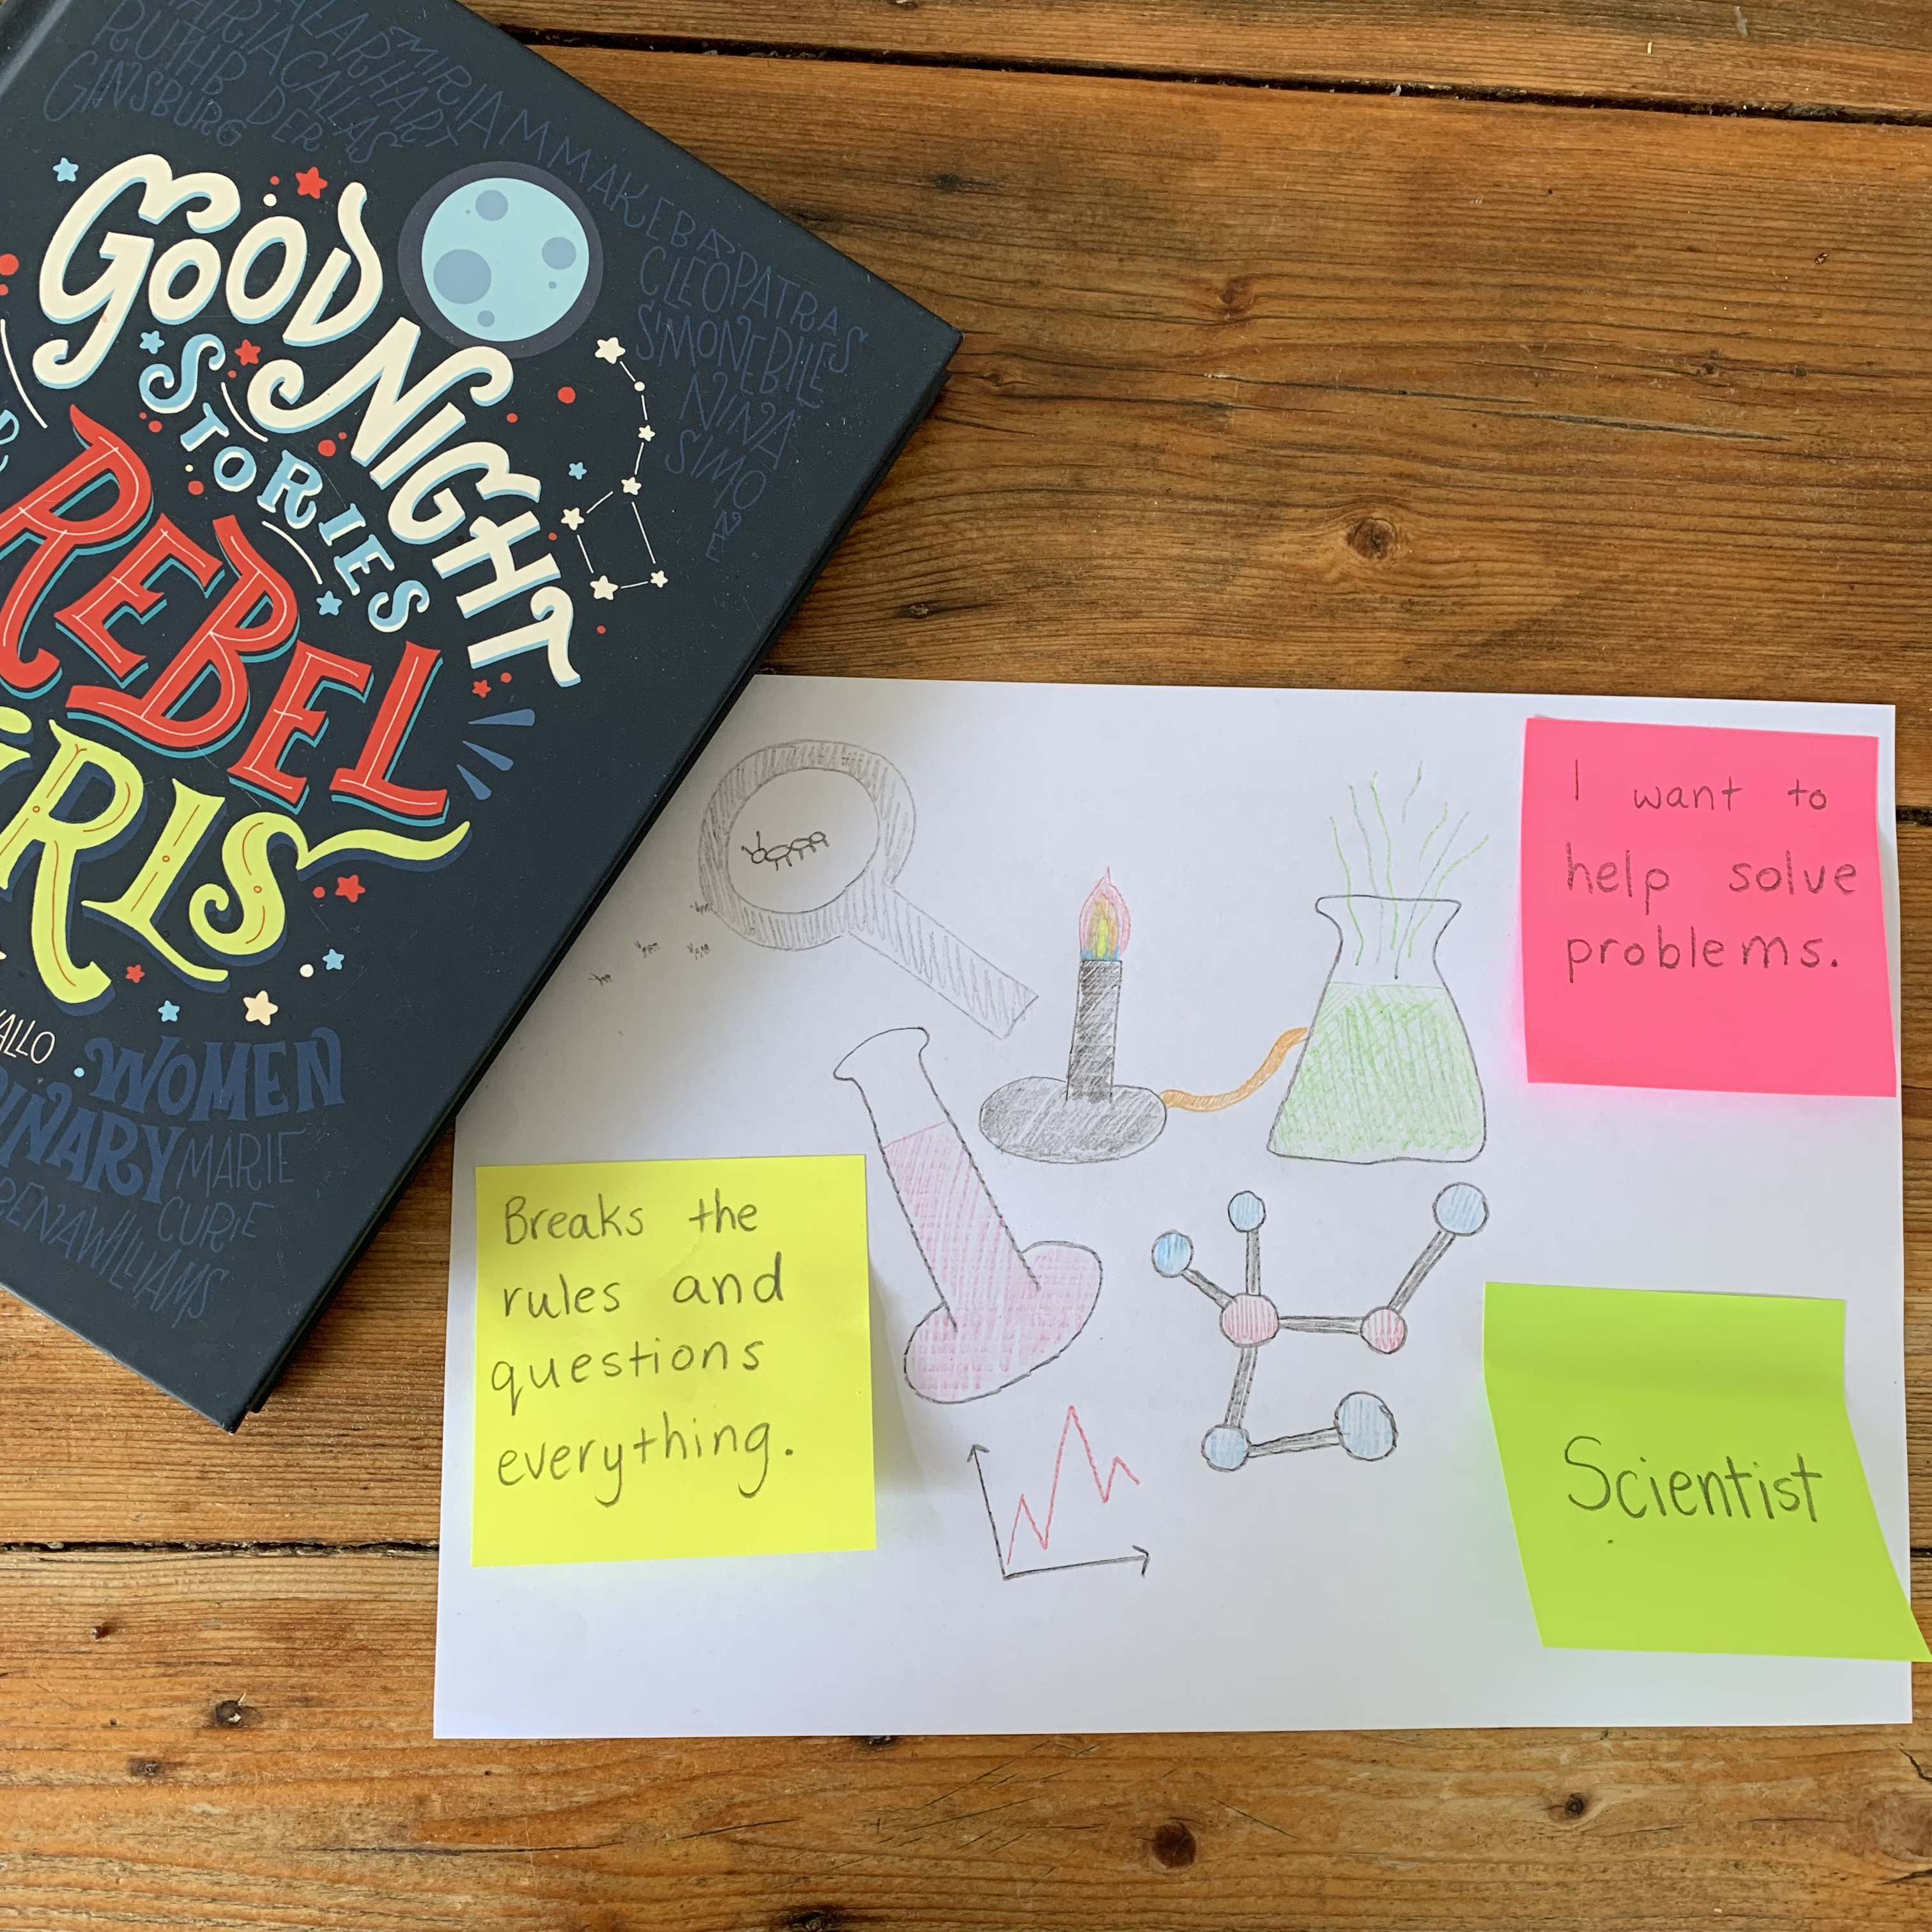 MARIA CALLAS
RUTH B
GINSBURG
MIRIAM MAKEBA
CLEOPATRA
SIMONE BILES
NINA
SIMONE
GOOD NIGHT
STORIES
REBEL
WOMEN
MARIE
CURIE
WILLIAMS
I want to
help solve
problems.
Breaks the
rules and
questions
everything.
Scientist